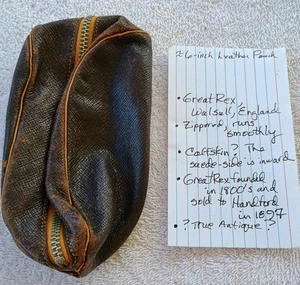 6-inch Leather Pouch
• Great Rex,
Walsall, England
• Zippered, runs
smoothly
• Calfskin? The
suede-side is inward
• Great Rex founded
in 1800's and
sold to Handford
in 1897
• ? True Antique?